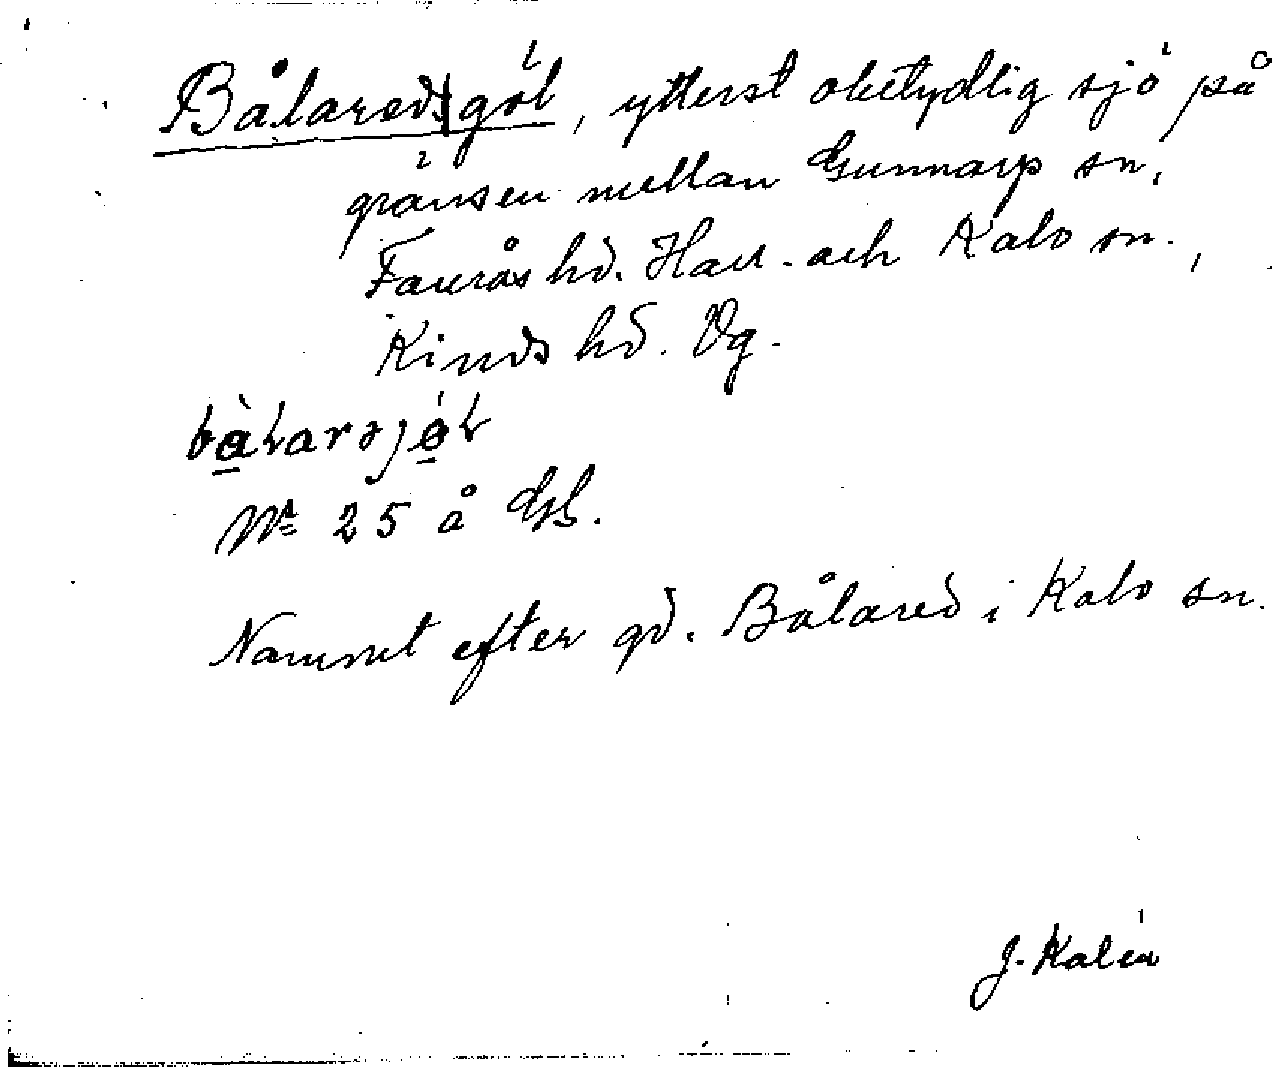 Bålareds göl, ytterst obetydlig sjö på
gränsen mellan Gunnarp sn,
Faurås hd. Hall. och Kalv sn.,
Kinds hd. Vg.
№ 25 å GS.
Namnet efter gd. Bålared i Kalv sn.
J. Kalén